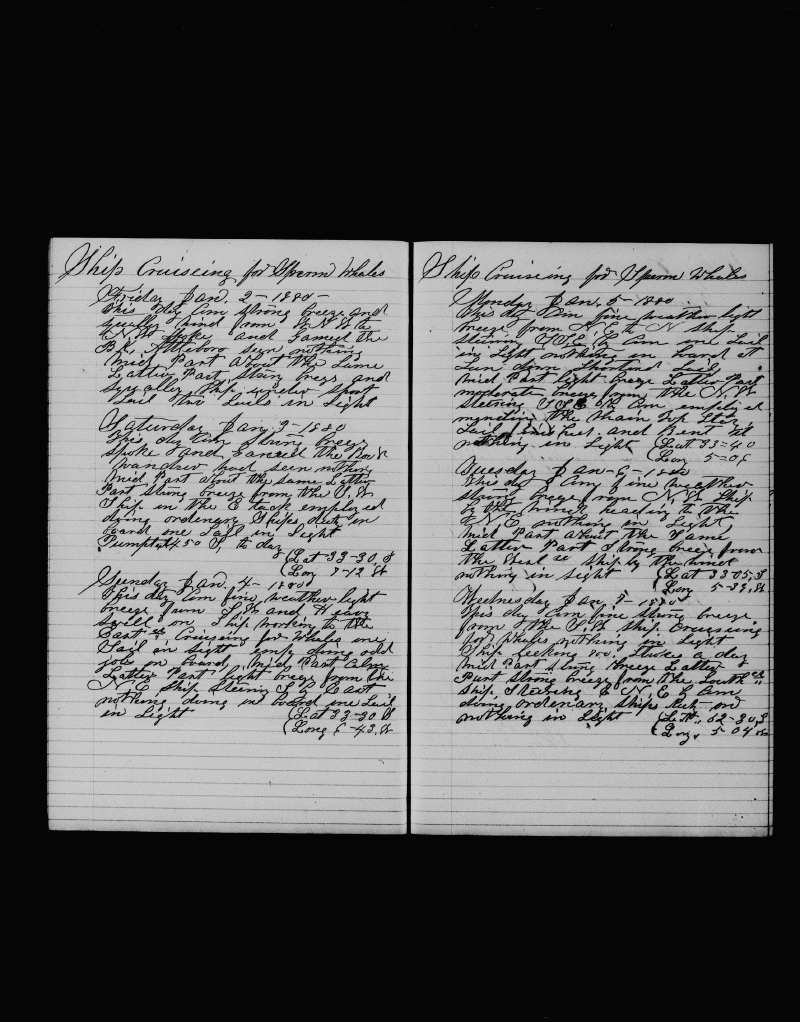 Ship Cruiseing for Sperm Whales
Friday Jan, 2 - 1880 -
This day Com strong breeze and
squally wind from W N W to
N W spoke and Gamed the
Bk, seen nothing
Mid Part about the Same
Latter Part strong breeze and
squally Ship under short
Sail two Sails in Sight
Saturday Jan, 3 - 1880
This day Com Strong breeze
Spoke and Gamed the Bark
Wanderer had seen nothing
Mid Part about the Same Latter
Part Strong breeze from the S, W
Ship on the E tack employed
doing ordenary Ships duty on
board one Sail in Sight
Pumpted 450 S, to day
(Lat 33-30, S
(Lon 7-12 W
Sunday Jan, 4 - 1880
This day Com fine weather light
breeze from S W and Heavy
swell on Ship working to the
East Cruiseing for Whales one
Sail in Sight emp doing odd
jobs on board, Mid Part Calm
Latter Part light breeze from the
N E Ship Steering S by East
nothing doing on board one Sail
in Sight (Lat 33-30 S
(Long 6-43, W
Ship Cruiseing for Sperm Whales
Monday Jan, 5 - 1880
This day Com fine weather light
breeze from N E to N Ship
Steering Com one Sail
in Sight nothing on board at
Sun down Shortend Sail
Mid Part light breeze Latter Part
moderate breeze from the N, W
Steering employed
mending the Main Top Stay
Sail and Bent it
nothing in Sight (Lat 33-40
(Lon 5-06
Tuesday Jan - 6 - 1880
This day Com fine weather
strong breeze from N W Ship
by the wind heading to the
E N E nothing in Sight
Mid Part about the Same
Latter Part Strong breeze from
the West Ship by the wind
nothing in sight (Lat 33 05, S
(Lon 5-33, W
Wednesday Jan, 7 - 1880
This day Com fine strong breeze
from the S, W Ship Cruiseing
for Whales nothing in Sight
Ship leeking 500, Stroke a day
Mid Part strong breeze Latter
Part strong breeze from the South
Ship Steering E N E Com
doing ordenary Ships duty on
nothing in Sight (Latt, 32-30, S
(Lon, 5 04 W